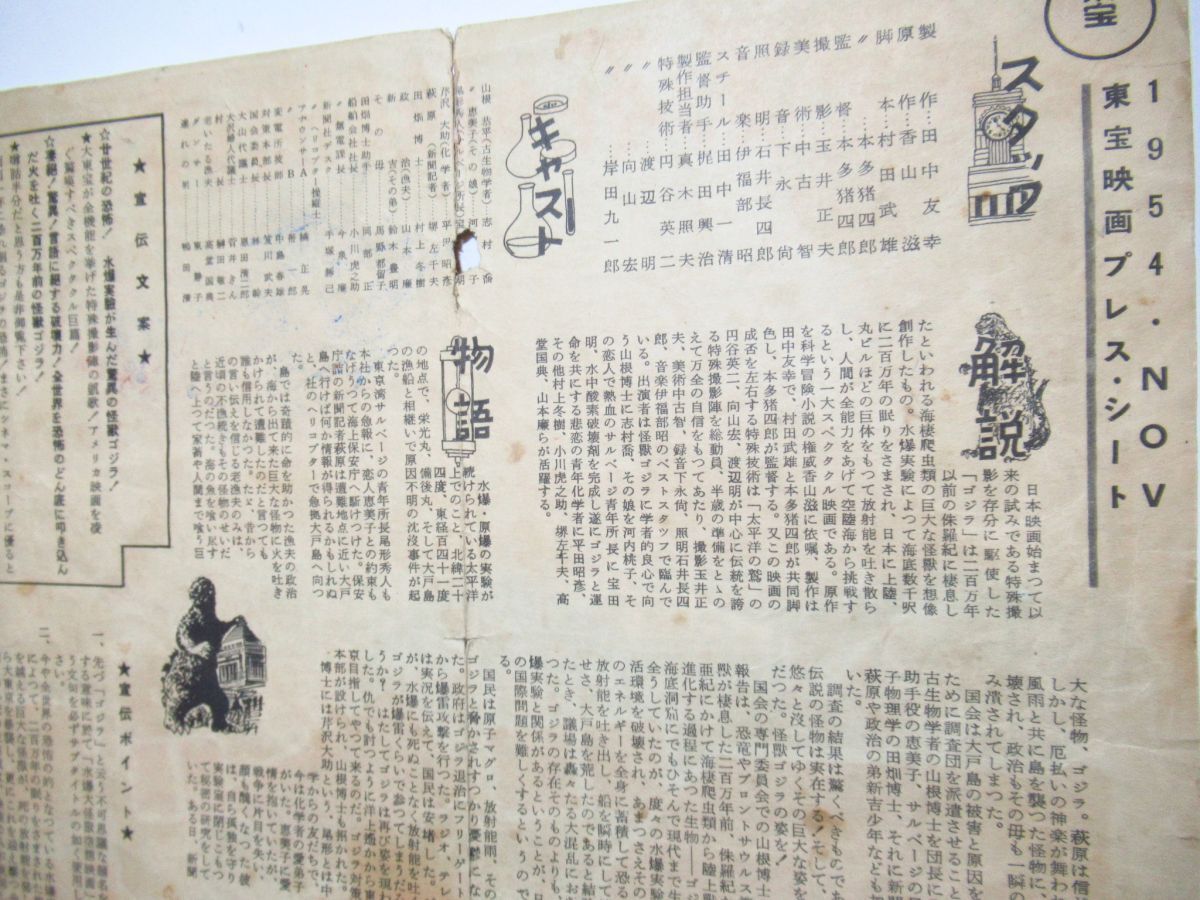 宝
1954・NOV
東宝映画プレス・シート
スタッフ
製作…田中友幸
原作…香山滋
脚本…村田武雄
〃…本多猪四郎
監督…本多猪四郎
撮影…玉井正夫
美術…中古智
録音…下永尚
照明…石井長四郎
音楽…伊福部昭
スチール…田中一清
監督助手…梶田興治
製作担当者…真木照夫
特殊技術…円谷英二
〃…渡辺明
〃…向山宏
〃…岸田九一郎
キャスト
山根恭平(古生物学者)…志村喬
〃恵美子(その娘)…河
芹沢大助(化学者)…平田昭彦
萩原(新聞記者)…堺左千夫
田畑博士…村上冬樹
政治(漁夫)…山本廉
新吉(その弟)…鈴木豊明
その母…馬野都留子
解説
日本映画始まつて以
来の試みである特殊撮
影を存分に駆使した
「ゴジラ」は二百万年
以前の侏羅紀に棲息し
たといわれる海棲爬虫類の巨大な怪獣を想像
創作したもの。水爆実験によつて海底数千呎
に二百万年の眠りをさまされ、日本に上陸、
丸ビルほどの巨体をもつて放射能を吐き散ら
し、人間が全能力をあげて空陸海から挑戦す
るという一大スペクタクル映画である。原作
を科学冒険小説の権威香山滋に依嘱、製作は
田中友幸で、村田武雄と本多猪四郎が共同脚
色し、本多猪四郎が監督する。又この映画の
成否を左右する特殊技術は「太平洋の鷲」の
円谷英二、向山宏、渡辺明が中心に伝統を誇
る特殊撮影陣を総動員、半歳の準備をとゝの
えて万全の自信をもつてあたり、撮影玉井正
夫、美術中古智、録音下永尚、照明石井長四
郎、音楽伊福部昭のベストスタッフで臨んで
いる。出演者は怪獣ゴジラに学者的良心で向
う山根博士に志村喬、その娘を河内桃子、そ
の恋人で熱血のサルベージ青年所長に宝田
明、水中酸素破壊剤を完成し遂にゴジラと運
命を共にする悲恋の青年化学者に平田昭彦、
その他村上冬樹、小川虎之助、堺左千夫、高
堂国典、山本廉らが活躍する。
物語
水爆・原爆の実験が
続けられている太平洋
上でのこと、北緯二十
四度、東経百四十一度
の地点で、栄光丸、
備後丸、そして大戸島
の漁船と相継いで原因不明の沈没事件が起
つた。
東京湾サルベージの青年所長尾形秀人も
本社からの急報に、恋人恵美子との約束も
なげうつて海上保安庁へ駈付けた。保安
庁詰の新聞記者萩原は遭難地点に近い大戸
島へ行けば何か情報が得られるかもしれぬ
と、社のヘリコプターで急拠大戸島へ向つ
た。
島では奇蹟的に命を助かつた漁夫の政治
が、海から出て来た巨大な動物に火を吐き
かけられて遭難したのだと言つても
誰も信用しなかつた。たゞ昔から
の言い伝えを信じる老漁夫のみは、
近頃の不漁続きもその怪物のせいだ
と言うのだつた。海の魚を喰い尽す
と、陸へ上つて来て家畜や人間まで喰う巨
大な怪物、ゴジラ。萩原は信
しかし、厄払いの神楽が舞われ
風雨と共に島を襲つた怪物に、
壊され、政治もその母も一瞬の
み潰されてしまつた。
国会は大戸島の被害と原因を
ために調査団を派遣させること
古生物学者の山根博士を団長に
助手役の恵美子、サルベージの尾
子物理学の田畑博士、それに新聞
萩原や政治の弟新吉少年なども加
いた。
調査の結果は驚くべきものであ
伝説の怪物は実在する!そして、
悠々と没してゆくその巨大な姿を
だつた。「ゴジラの姿を!
国会の専門委員会での山根博士
報告は、恐竜やブロントサウルス等
獣が棲息した二百万年前、侏羅紀か
亜紀にかけて海棲爬虫類から陸上獣
進化する過程にあつた生物―ゴジ
海底洞窟にでもひそんで現代まで生
全うしていたのが、度々の水爆実験
活環境を破壊され、あまつさえその
のエネルギーを全身に蓄積して恐る
放射能を吐き出し、船を瞬時にして
せさ、大戸島を荒したのであると結
たとき、議場は轟々たる大混乱にお
つた。ゴジラの存在そのものよりも、
爆実験と関係があるということが、日
の国際問題を難しくするというので
る。
国民は原子マグロ、放射能雨、その
ゴジラと脅かされすつかり憂鬱にな
た。政府はゴジラ退治にフリーゲート
から爆雷攻撃を行つた。ラジオ、テレ
は実況を伝えて、国民は安堵した。
が、水爆にも死ぬことなく放射能を
ゴジラが爆雷くらいで参つてしまうだ
うか?はたしてゴジラは再び姿を現
した。仇でも討つように洋上遥かから東
京目指してやつて来るのだ。ゴジラ対策
本部が設けられ、山根博士も招かれた。
博士には芹沢大助という、尾形とは中
学からの友だちで、
今は化学者の愛弟子
がいた。恵美子に愛
情を抱いていたが、
戦争に片目を失い、
顔も醜くなつた彼
は、自ら孤独を守り
実験室に閉じこもつ
て秘密の研究をして
いた。ある日、新聞
★宣伝文案★
☆廿世紀の恐怖!水爆実験が生んだ驚異の怪獣ゴジラ!
★大東宝が全機能を挙げた特殊撮影陣の凱歌!アメリカ映画を凌
ぐ驚嘆すべきスペクタクル巨篇!
☆凄絶!驚異!言語に絶する破壊力!全世界を恐怖のどん底に叩き込ん
だ火を吐く二百万年前の怪獣ゴジラ!
★噂話半分だと思う方も是非御覧下さい!
★宣伝ポイント★
一、先づ「ゴジラ」と云う不可思議な題名を
する意味に於て「水爆大怪獣恐怖映画」
う文句を必ずサブタイトルの如く使用し
さい。
二、今や全世界の恐怖の的となつている水爆
によつて、二百万年の眠りをさまされた